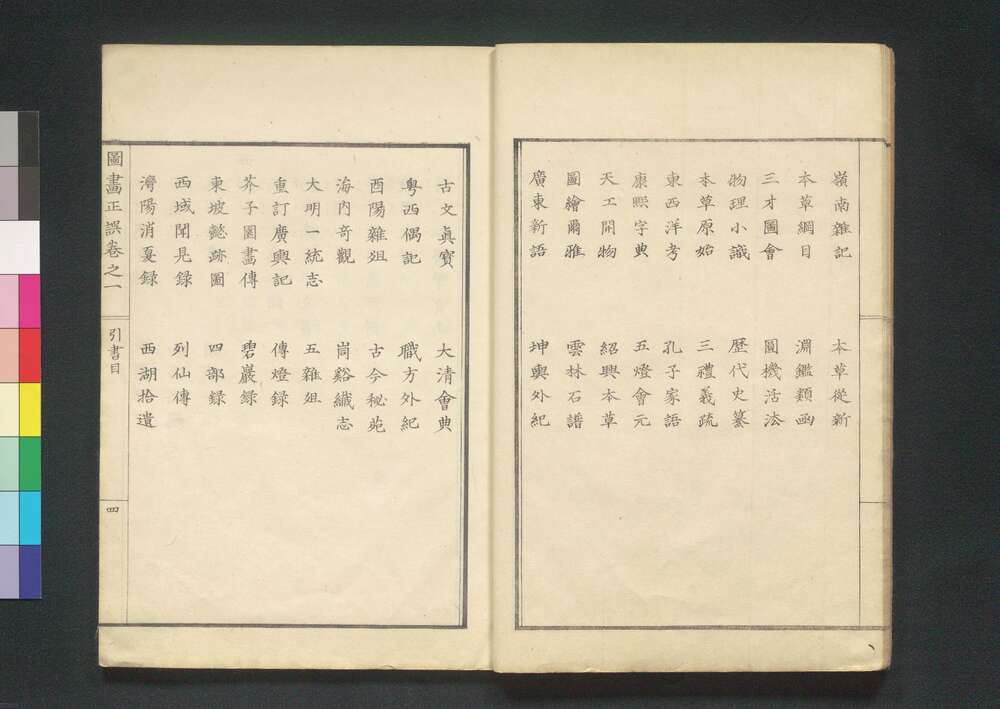 嶺南雜記　本草從新
本草綱目　淵鑑類函
三才圖會　圓機活法
物理小識　歷代史纂
本草原始　三禮義疏
東西洋考　孔子家語
康熙字典　五燈會元
天工開物　紹興本草
圖繪爾雅　雲林石譜
廣東新語　坤輿外紀
古文眞寶　大清會典
粤西偶記　職方外紀
酉陽雜俎　古今秘苑
海內奇觀　峝谿纎志
大明一統志　五雜俎
重訂廣輿記　傳燈録
芥子園畫傳　碧巖録
東坡懿跡圖　四部録
西域聞見録　列仙傳
灤陽消夏録　西湖拾遺
圖畵正誤卷之一　引書目　四